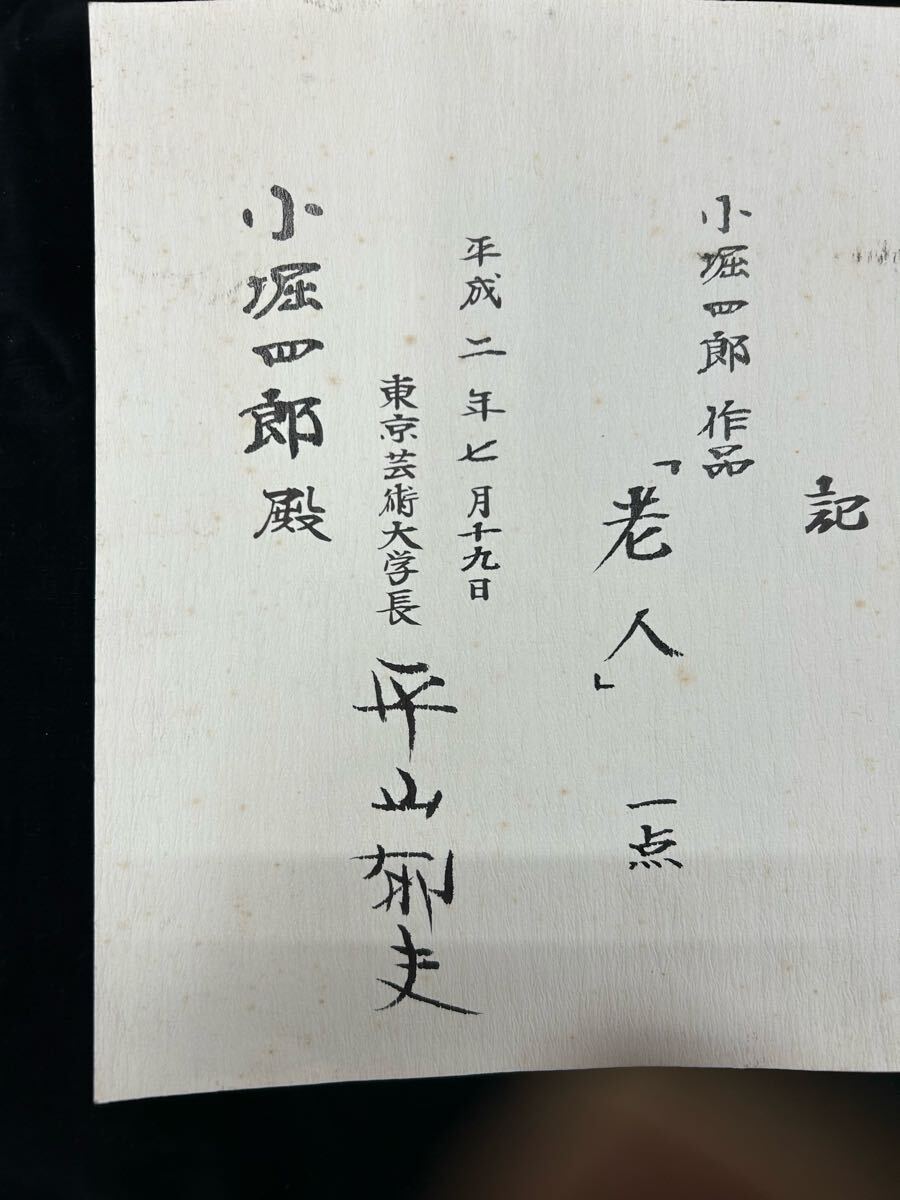 記
小堀四郎 作品
「老人」 一点
平成二年七月十九日
東京芸術大学長 平山郁夫
小堀四郎 殿